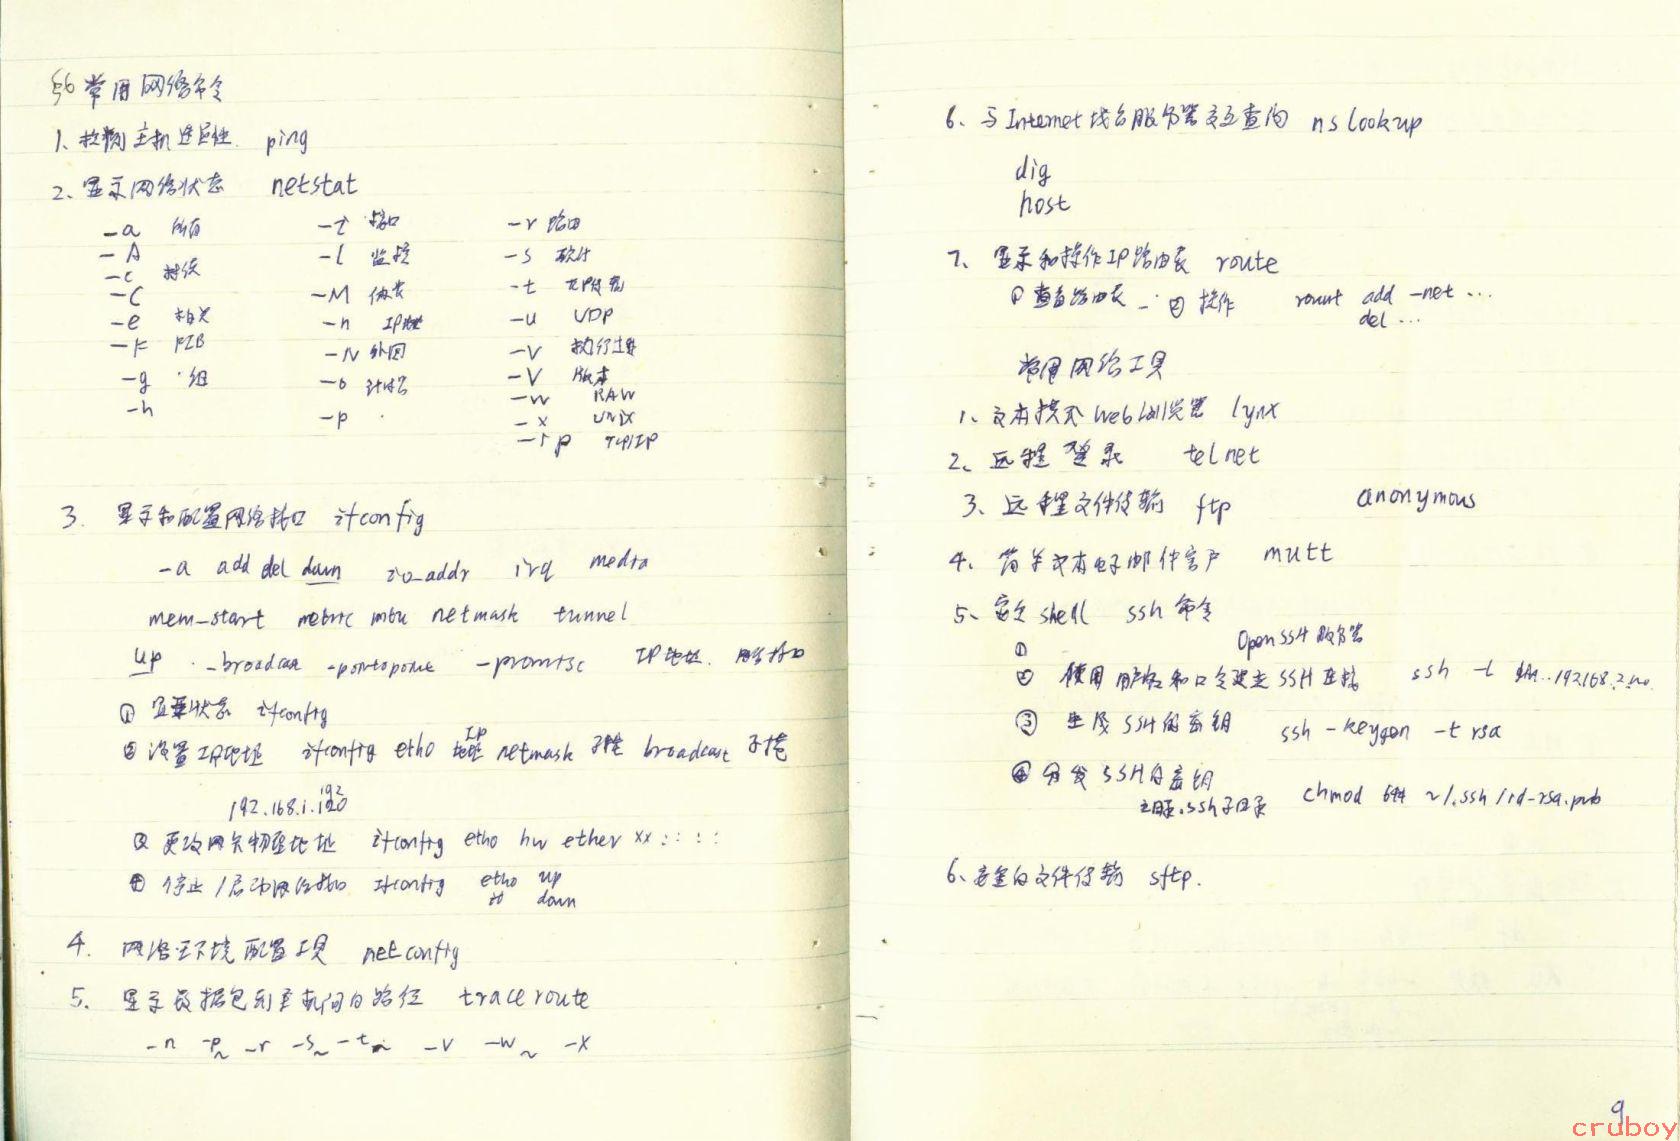 §6 常用网络命令
1、检测主机连通性. ping
2、显示网络状态 netstat
-a 所有 -i 接口 -r 路由
-A -l 监控 -s 统计
-c 持续
-C -M 伪装 -t
-e 相关 -n IP地址 -u UDP
-F FIB -N 外围 -v 执行过程
-g 组 -o 计时器 -V 版本
-h -p -w RAW
-x UNIX
-ip TCP/IP
3. 显示和配置网络接口 ifconfig
-a add del down io_addr irq media
mem_start metric mtu netmask tunnel
up -broadcast -pointopoint -promisc IP地址. 网络接口
① 显示状态 ifconfig
② 设置IP地址 ifconfig eth0 IP地址 netmask 子掩 broadcast 子掩
192.168.1.120
192
③ 更改网卡物理地址 ifconfig eth0 hw ether xx : : : :
④ 停止/启动网络接口 ifconfig eth0 up
down
4. 网络环境配置工具 netconfig
5. 显示数据包到主机间的路径 traceroute
-n -p~ -r -s~ -t~ -v -w~ -x
6、与Internet域名服务器交互查询 nslookup
dig
host
7、显示和操作IP路由表 route
① 查看路由表 ② 操作 rount add -net ...
del ...
常用网络工具
1、文本模式Web浏览器 lynx
2、远程登录 telnet
3、远程文件传输 ftp anonymous
4、简单文本电子邮件客户 mutt
5、安全shell ssh命令
① OpenSSH服务器
② 使用用户名和口令建立SSH连接 ssh -l
③ 生成SSH的密钥 ssh-keygen -t rsa
④ 分发SSH的密钥
主目录.ssh子目录 chmod 644 ~/.ssh/id-rsa.pub
6、安全的文件传输 sftp.
9
cruboy